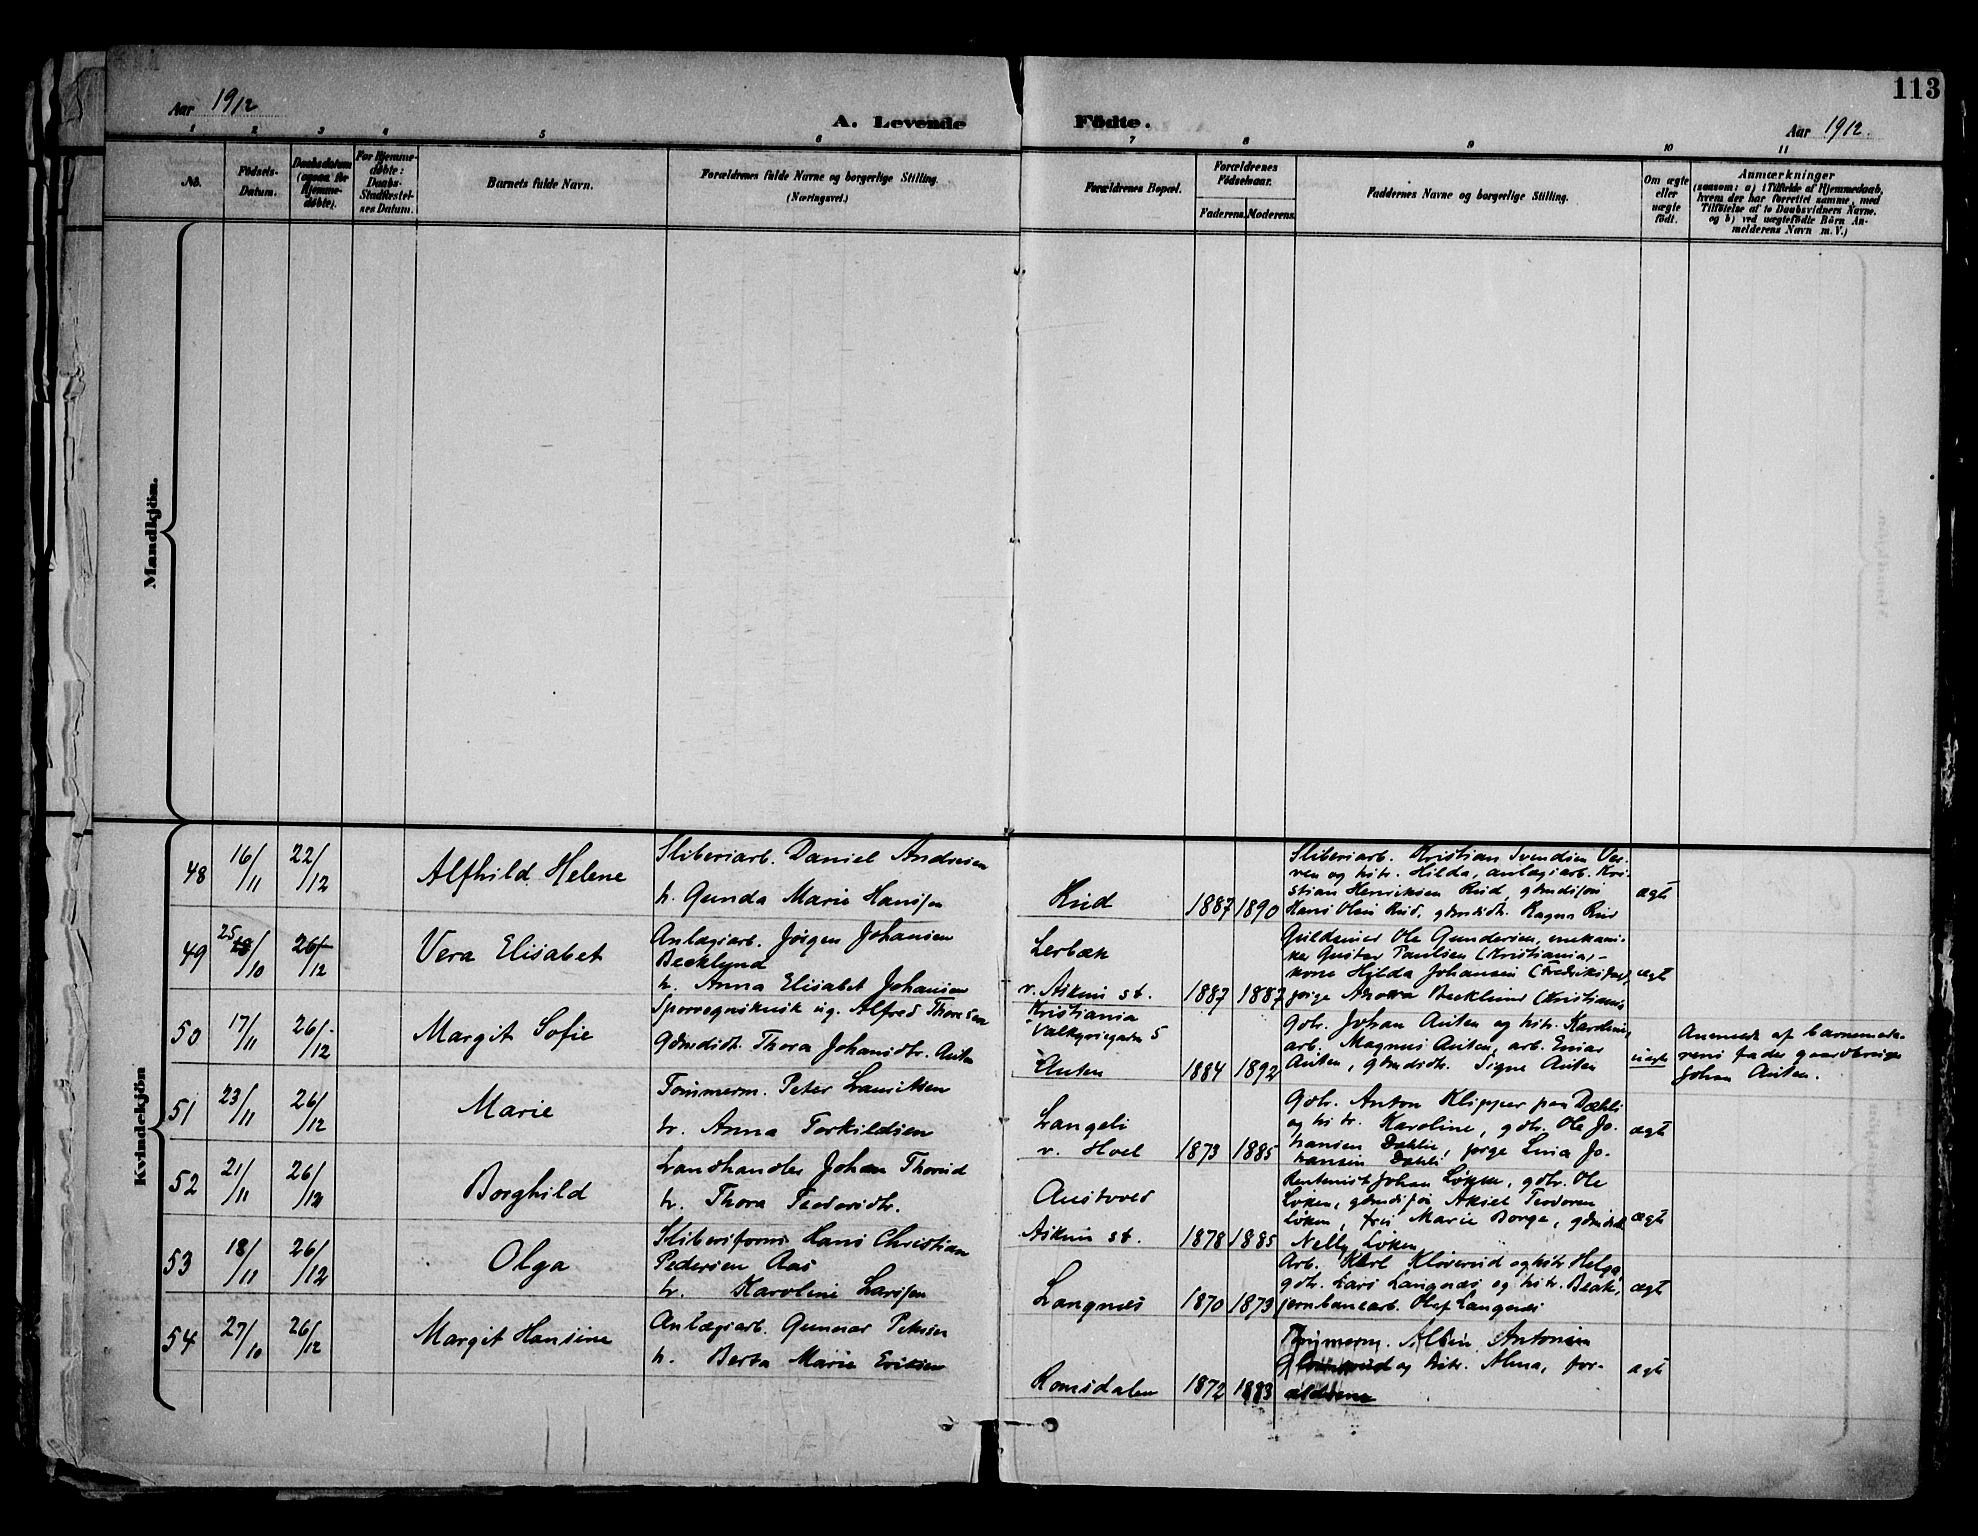 113
Aar 1912
A. Levende Födte.
Aar 1912.
1 2 3 4 5 6 7 8 9 10 11
No.
Födsels-
Datum.
Daabsdatum
(ogsaa for
Hjemme-
døbte).
For Hjemme-
døbte:
Daabs-
Stadfæstel-
ses Datum.
Barnets fulde Navn.
Forældrenes fulde Navne og borgerlige Stilling
(Næringsvei.)
Forældrenes Bopæl.
Forældrenes
Fødselsaar.
Faderens. Moderens.
Faddernes Navne og borgerlige Stilling.
Om ægte
eller
uægte
født.
Anmærkninger
(saasom: a) i Tilfælde af Hjemmedaab,
hvem der har forrettet samme, med
Tilføielse af to Daabsvidners Navne,
og b) ved uægtefødte Børn An-
melderens Navn m. V.)
Mandkjön.
Kvindekjön
48 16/11 22/12 Alfhild Helene
Sliberiarb. Daniel Andresen
h. Gunda Marie Hansen
Rud 1887 1890
Sliberiarb. Kristian Svendsen Ver-
ven og hstr. Hilda, anlægsarb. Kri-
stian Henriksen Rud, gbmdssøn
Hans Olsen Rud, gbmdsdtr. Ragna Rud
ægte
49 25/10 26/12 Vera Elisabet
Anlægsarb. Jørgen Johansen
Becklund
h. Anna Elisabet Johansen
Lerbæk
v. Askim st. 1887 1887
Guldsmed Ole Gundersen, mekani-
ker Gustav Paulsen (Kristiania,-
kone Hilda Johansen (Fredriksstad),
pige Becklund (Kristiania
ægte
50 17/11 26/12 Margit Sofie
Sporvegnskusk ug. Alfred Thoresen
Gbmdsdtr. Thora Johansdtr. Auten
Kristiania
Valkyriegaten 5
Auten 1884 1892
Gbr. Johan Auten og hstr. Karoline,
arb. Magnus Auten, arb. Einar
Auten, gbmdsdtr. Signe Auten
uægte
Anmeldt af barnemode-
rens fader gaardbruger
Johan Auten.
51 23/11 26/12 Marie
Tømmerm. Peter Lauritsen
h. Anna Torkildsen
Langeli
v. Hoel 1873 1885
Gbr. Anton Klipper paa Dæhli
og hstr. Karoline, gbr. Ole Jo-
hansen Dæhli, pige Lina Jo-
hansen Dæhli
ægte
52 21/11 26/12 Borghild
Landhandler Johan Thorud
h. Thora Teodorsdtr.
Austvoed
Askim st. 1878 1885
Rentenist Johan Løken, gbr. Ole
Løken, gbmdssøn Aksel Teodoren
Løken, frk Marie Borge, gbmdsdtr
Nelly Løken
ægte
53 18/11 26/12 Olga
Sliberiform. Hans Christian
Pedersen Aas
h. Karoline Larsen
Langnæs 1870 1873
Arb. Karl Kløverud og hstr. Helga,
gbr. Lars Langnæs og hstr. Beate,
jernbanearb. Olaf Langnæs
ægte
54 27/10 26/12 Margit Hansine
Anlægsarb. Gunnar Petersen
h. Berta Marie Eriksen
Romsdalen 1872 1883
Tømmerm. Albin Antonsen
og hstr. Alma, for-
ældrene
ægte